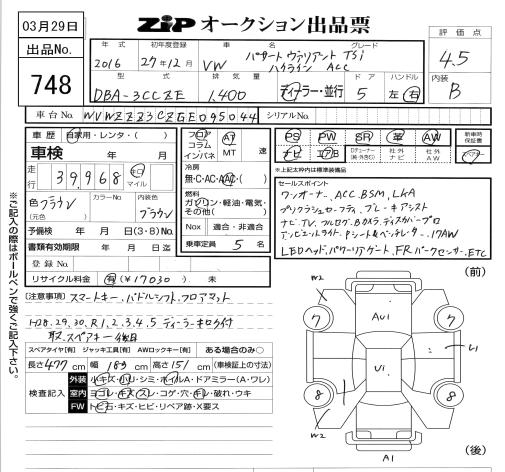 03月29日
ZIP オークション出品票
評価点
4.5
内装
B
出品No.
748
年式 初年度登録 車名 グレード
2016 27年12月 VW パサートヴァリアント TSI
ハイライン ACC
型式 排気量 ドア ハンドル
DBA-3CCZE 1,400 ディーラー・並行 5 左・右
車台No. WVWZZZ3CZGE095044 シリアルNo.
車歴 自家用・レンタ・( )
車検 年 月
走行 39,968 キロ マイル
色 ブラウン カラーNo. 内装色 ブラウン
(元色)
予備検 年 月 日 (3・8) No.
書類有効期限 年 月 日迄
登録No.
リサイクル料金 有(¥17030) . 未
フロア コラム インパネ AT MT 速
冷房
無・C・AC・AAC・( )
燃料
ガソリン・軽油・電気・その他( )
Nox 適合・非適合
乗車定員 5 名
PS PW SR 革 AW 新車時保証書
ナビ エアB Dチューナー(純・外含む) 社外ナビ 社外AW
※上記太枠内は標準装備品
セールスポイント
ワンオーナー、ACC、BSM、LKA
プリクラッシュセーフティ、ブレーキアシスト
ナビ、TV、フルセグ、Bカメラ、ディスカバープロ
アンビエントライト、Pシート&ベンチレーター、17AW
LEDヘッド、パワーリアゲート、FRパークセンサー、ETC
[注意事項] スマートキー、パドルシフト、フロアマット
H28.29.30.R1.2.3.4.5 ディーラーキロク付
取、スペアキー1個有
スペアタイヤ[有] ジャッキ工具[有] AWロックキー[有] ある場合のみ○
長さ477cm 幅183cm 高さ151cm (車検証上の寸法)
検査記入
外装 小キズ・凹リ・シミ・ホイルA・ドアミラー(A・ワレ)
室内 ヨゴレ・キズ・スレ・コゲ・穴・キレ・破れ・ウキ
FW トビ石・キズ・ヒビ・リペア跡・X要ス
※ご記入の際はボールペンで強くご記入下さい。
(前)
W2
7
AU1
7
U1
U1
8
8
W2
A1
(後)